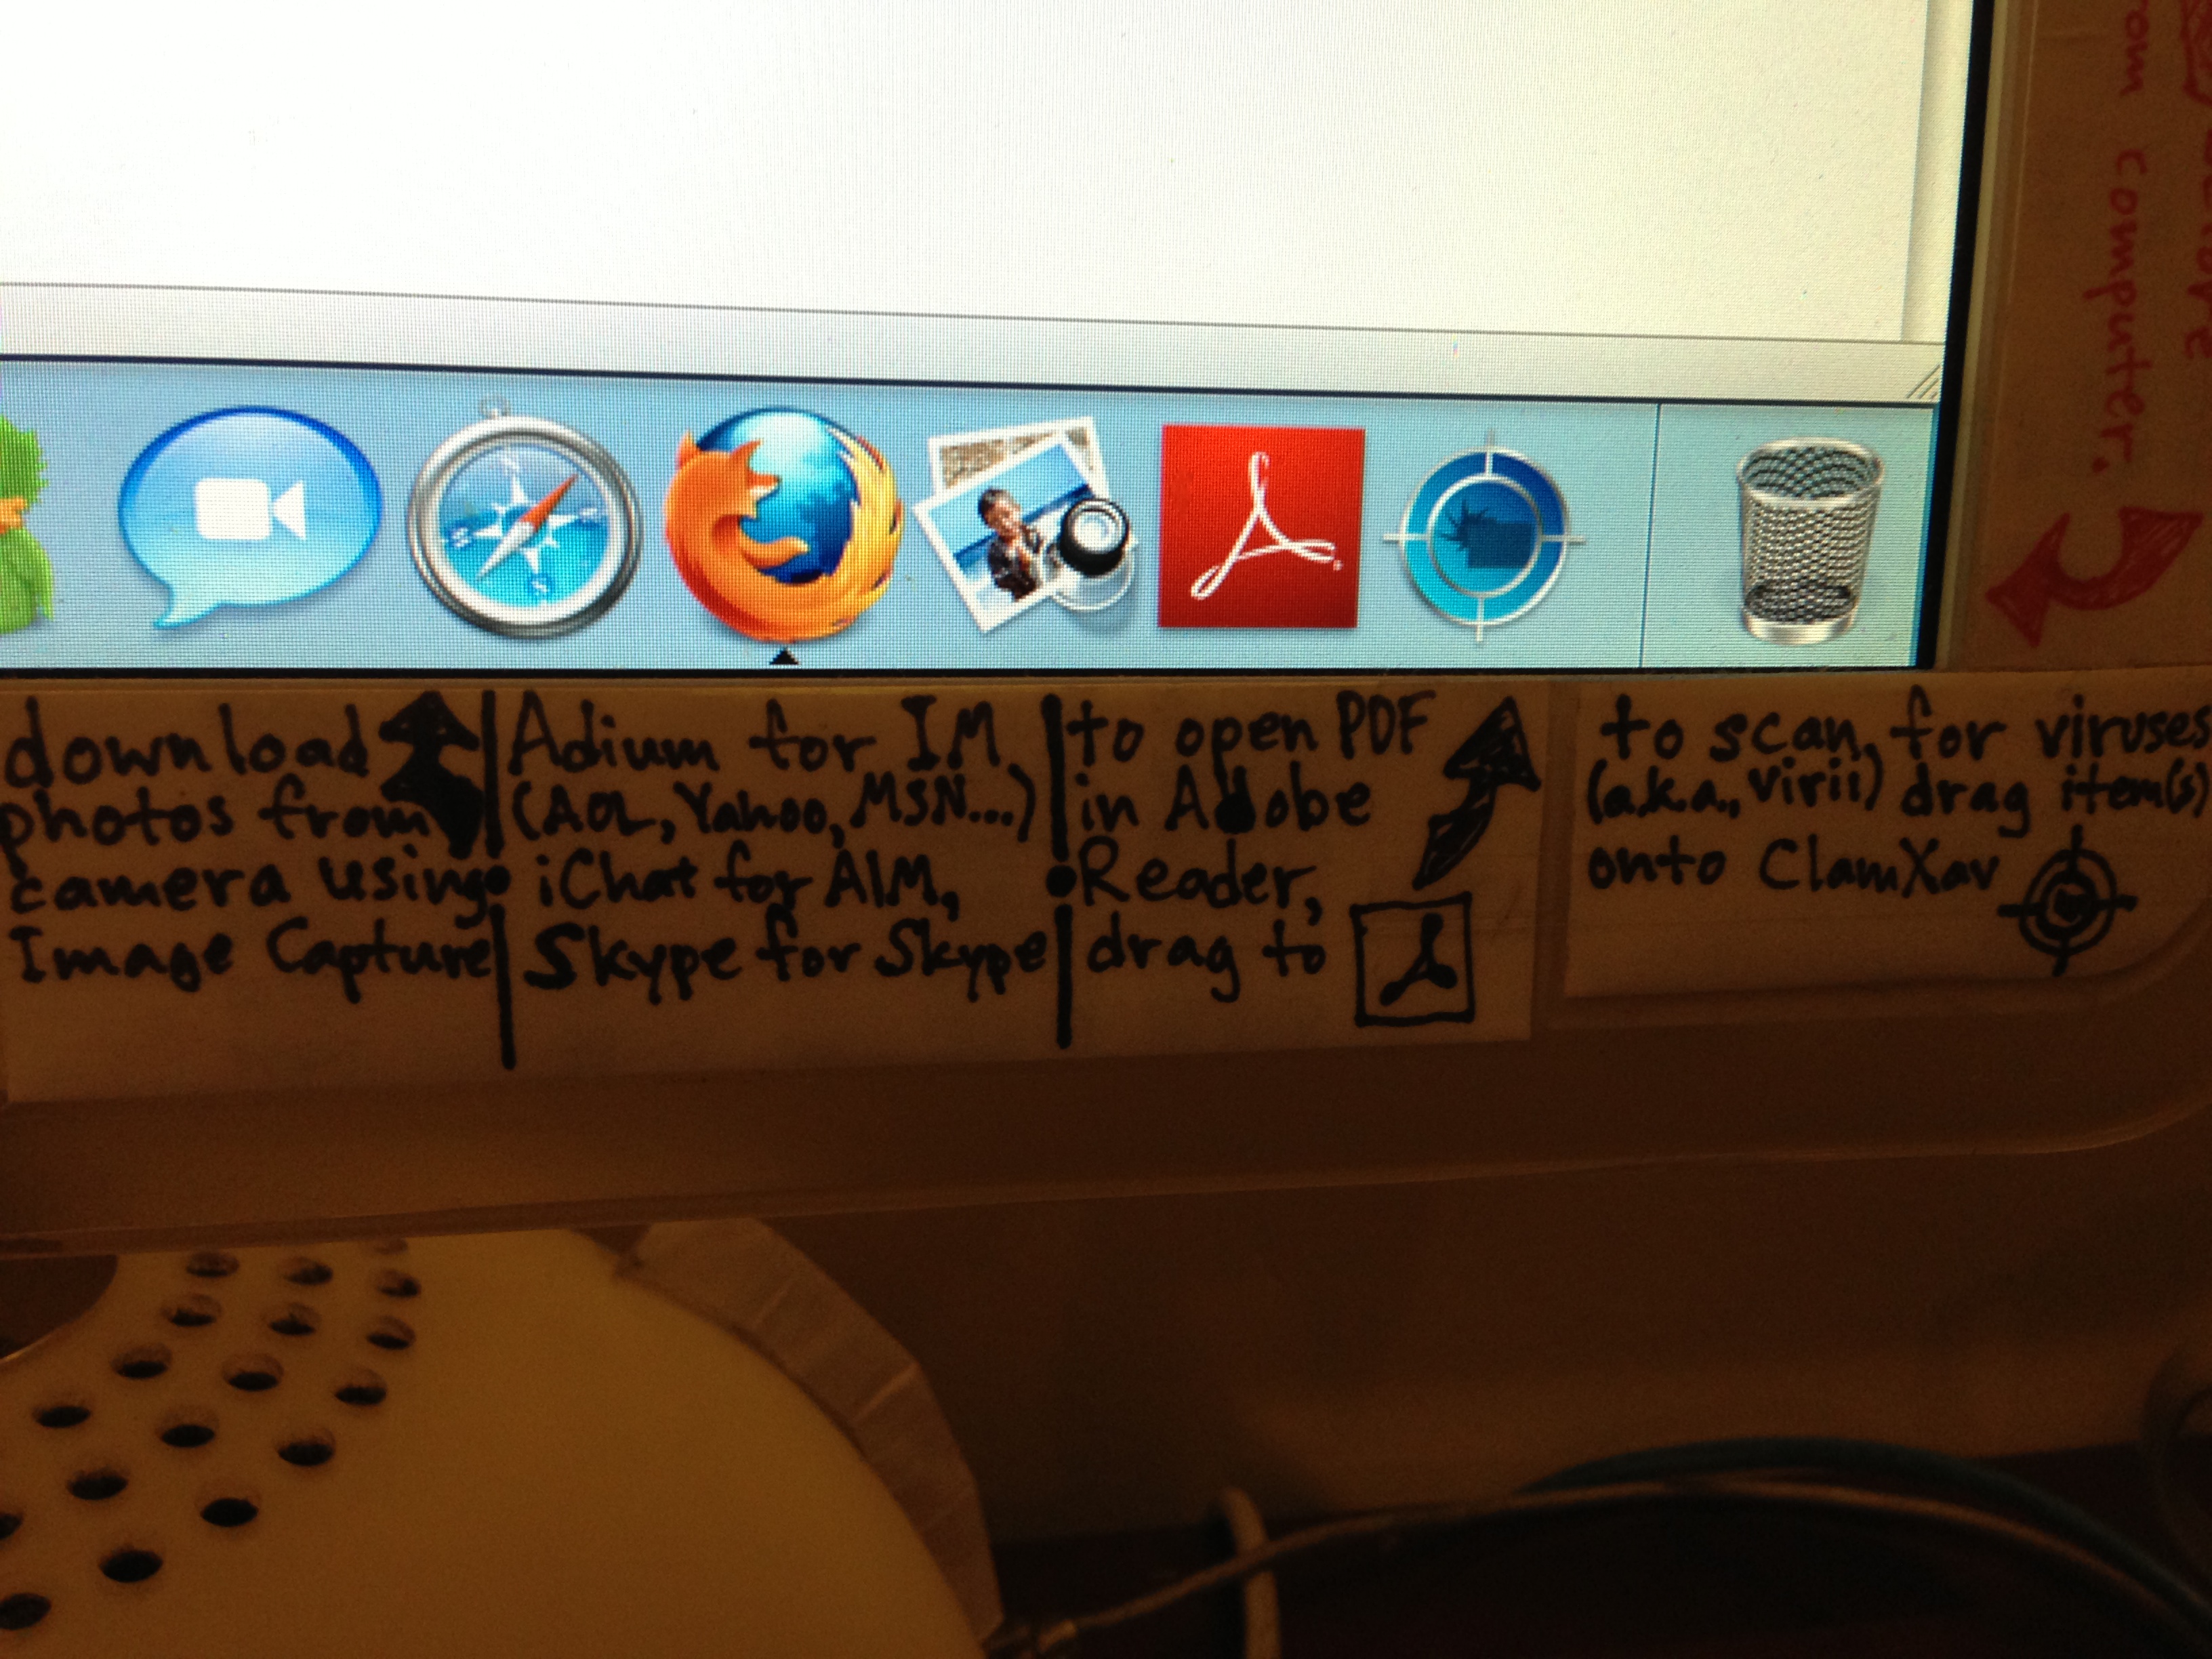 download
photos from
camera using
Image Capture
Adium for IM
(AOL, Yahoo, MSN...)
iChat for AIM,
Skype for Skype
to open PDF
in Adobe
Reader,
drag to
to scan, for viruses
(a.k.a., virii) drag item(s)
onto ClamXav
computer.